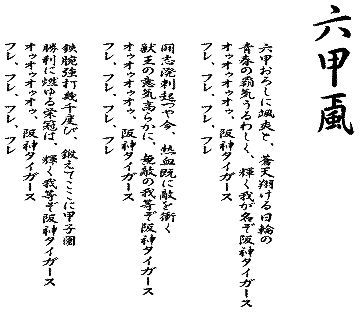 六甲颪
六甲おろしに颯爽と、蒼天翔ける日輪の
青春の覇気うるわしく、輝く我が名ぞ阪神タイガース
オゥオゥオゥオゥ、阪神タイガース
フレ、フレ、フレ、フレ
闘志溌剌起つや今、熱血既に敵を衝く
獣王の意気高らかに、無敵の我等ぞ阪神タイガース
オゥオゥオゥオゥ、阪神タイガース
フレ、フレ、フレ、フレ
鉄腕強打幾千度び、鍛えてここに甲子園
勝利に燃ゆる栄冠は、輝く我等ぞ阪神タイガース
オゥオゥオゥオゥ、阪神タイガース
フレ、フレ、フレ、フレ